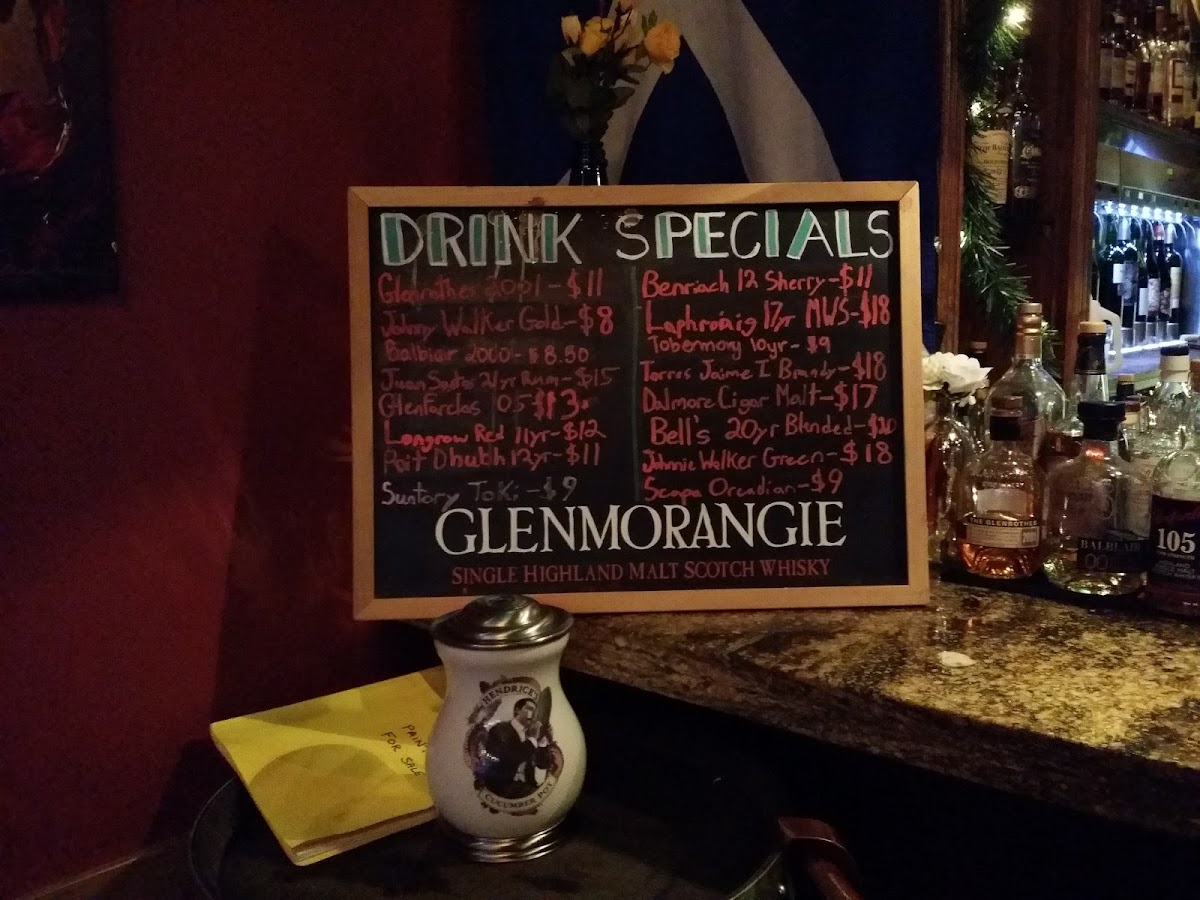 DRINK SPECIALS
Glenrothes 2001 - $11
Johnny Walker Gold - $8
Balblair 2000 - $8.50
Juan Santos 21yr Rum - $15
Glenfarclas '05 $13.
Longrow Red 11yr - $12
Poit Dhubh 12yr - $11
Suntory Toki - $9
Benriach 12 Sherry - $11
Laphroaig 17yr MWS - $18
Tobermory 10yr - $9
Torres Jaime I Brandy - $18
Dalmore Cigar Malt - $17
Bell's 20yr Blended -
Johnnie Walker Green - $18
Scapa Orcadian - $9
GLENMORANGIE
SINGLE HIGHLAND MALT SCOTCH WHISKY
HENDRICK'S
CUCUMBER POT
FOR SALE
THE GLENROTHES
BALBLAIR
105